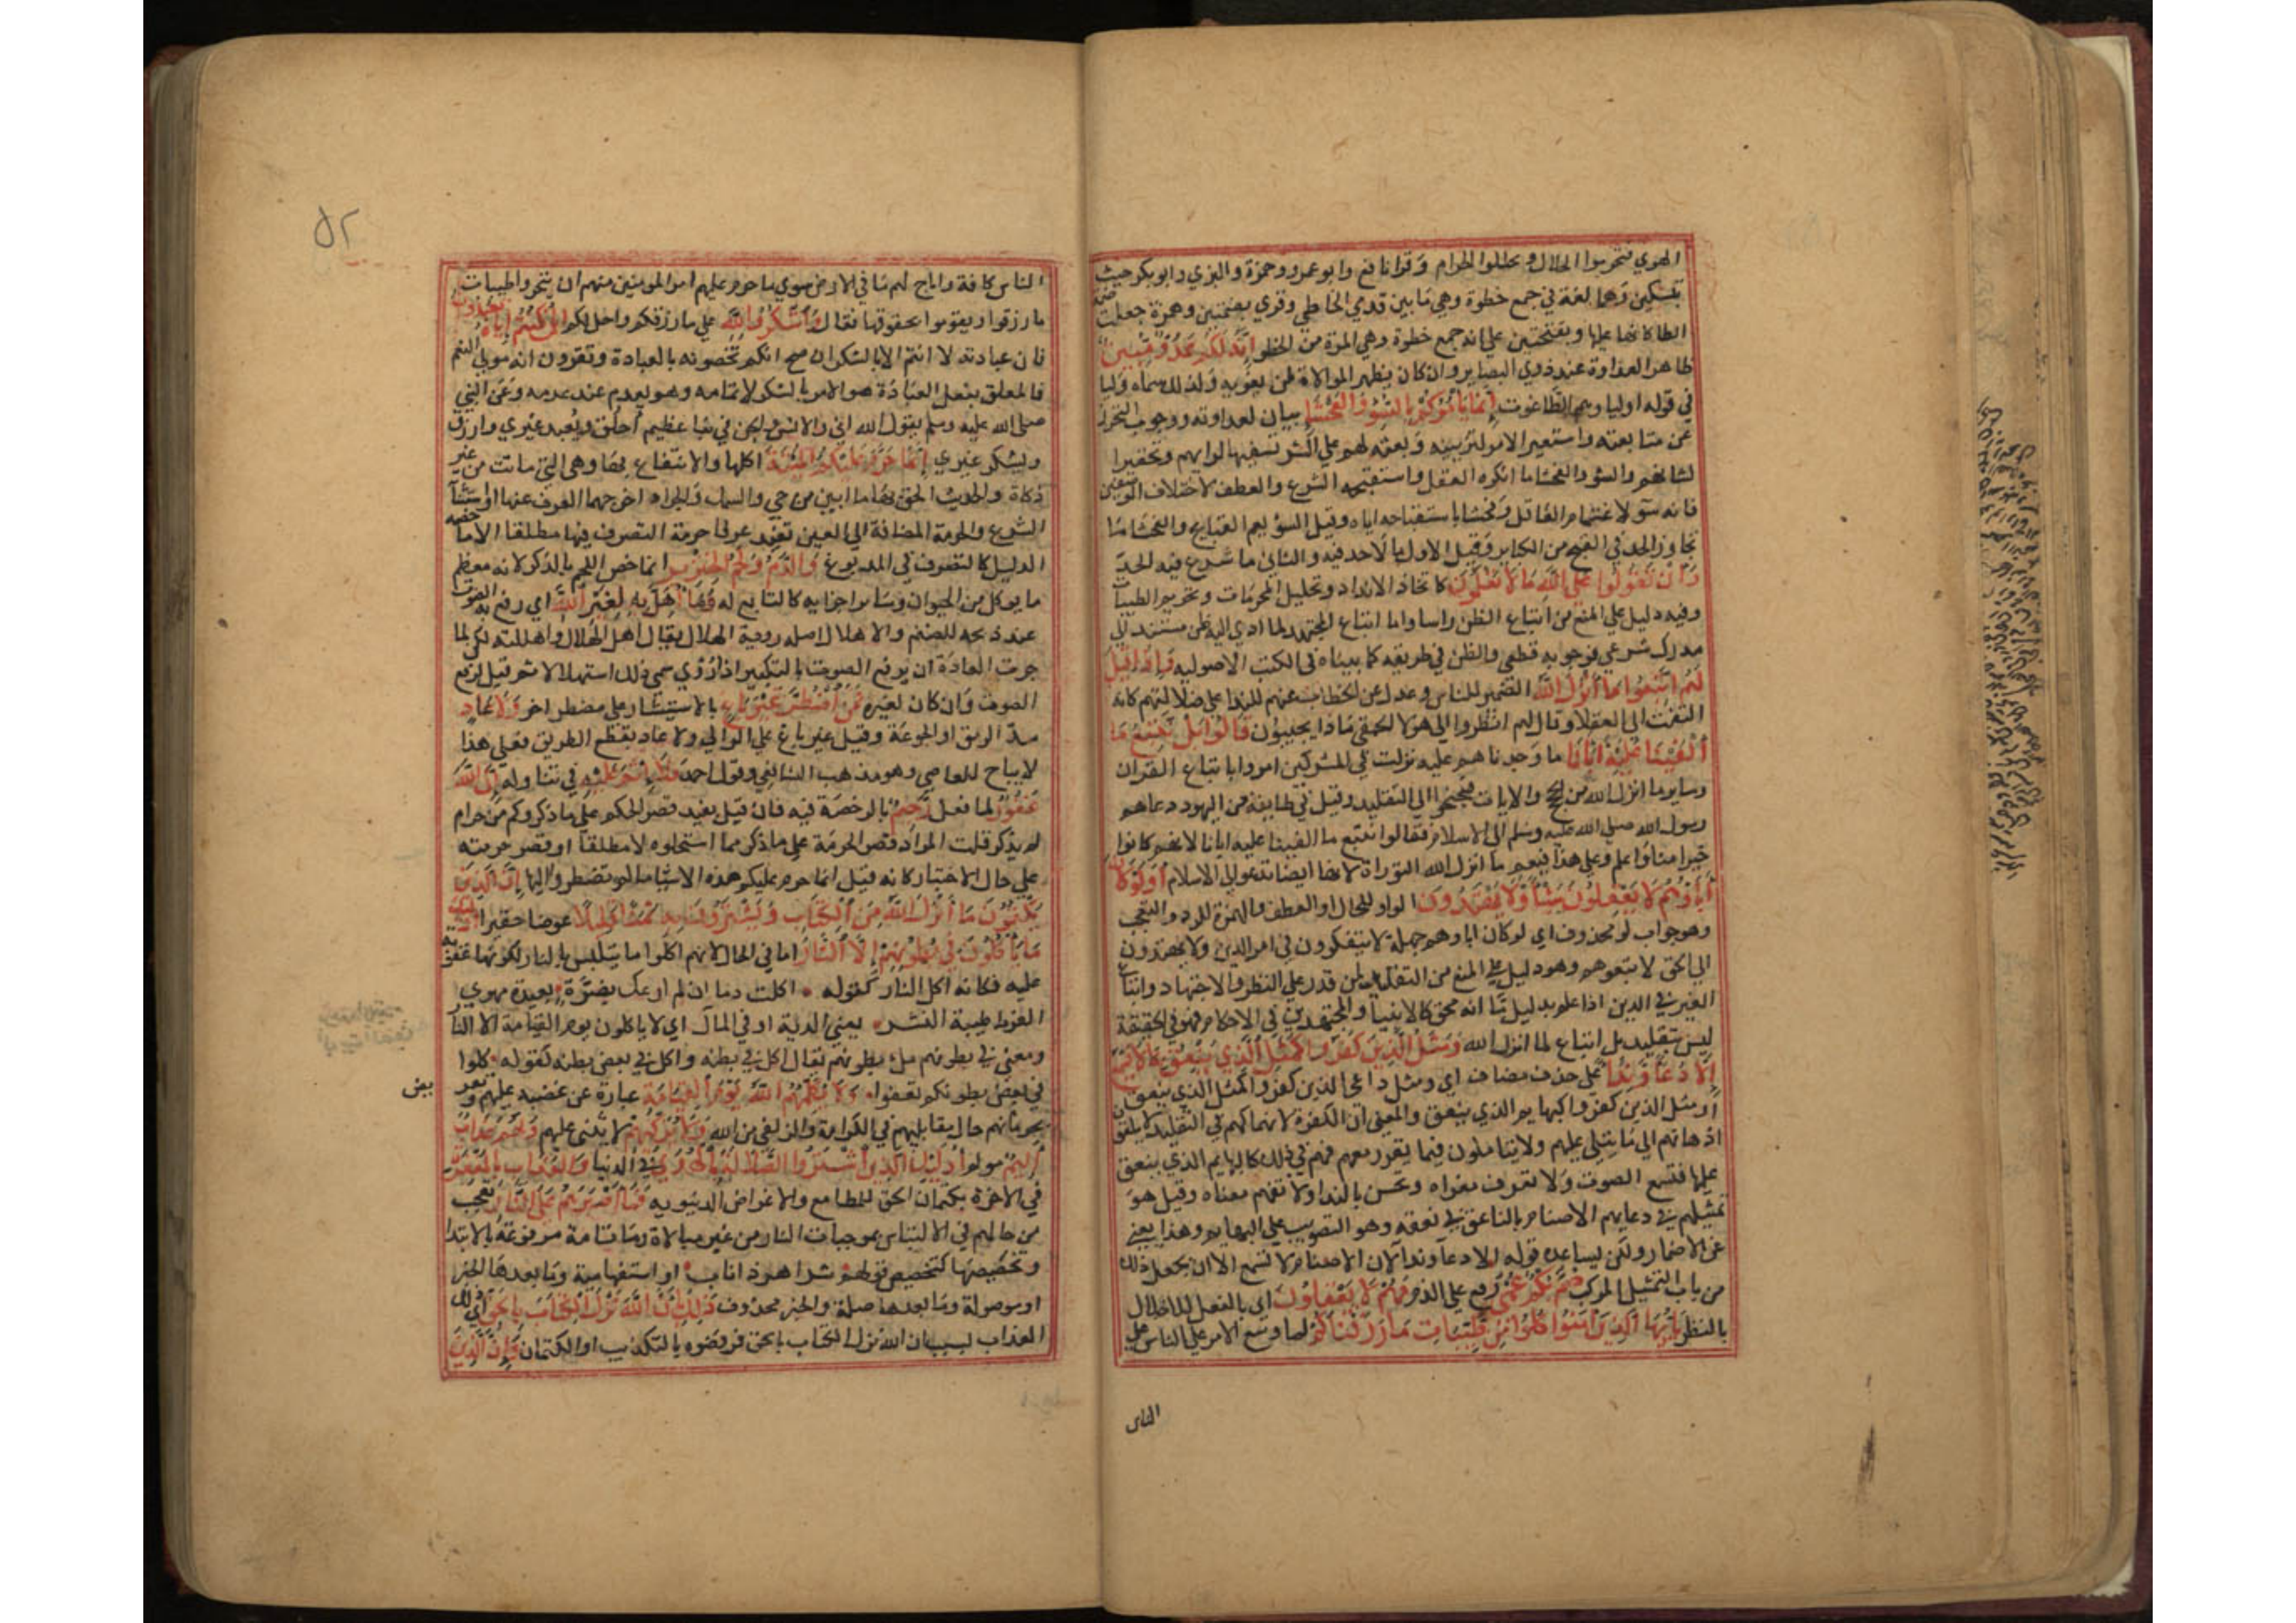 الهوي فتحرموا الحلال و تحللوا الحرام وقرا نافع وابو عمرو وحمزة والبزي وابوبكر حيث
بتسكين وهما لغة في جمع خطوة وهي ما بين قدمي الخاطي وقري بضمتين وهمزة جعلت ضمة
الطا كانها عليها وبفتحتين علي انه جمع خطوة وهي المرة من الخطو إنه لكم عدو مبين
ظاهر العداوة عند ذوي البصاير وان كان يظهر الموالاة لمن يغويه ولذلك سماه وليا
في قوله اوليا وهم الطاغوت إنما يأمركم بالسوء والفحشا بيان لعداوته ووجوب التحرز
عن متابعته واستعير الامر لتزيينه وبعثه لهم علي الشر تسفيها لرايهم وتحقيرا
لشانهم والسؤ والفحشا ما انكره العقل واستقبحه الشرع والعطف لاختلاف الوصفين
فانه سؤ لاغتمام العاقل وفحشا باستقباحه اياه وقيل السؤ يعم القبايح والفحشا ما
تجاوز الحد في القبح من الكباير وقيل الاول ما لا حد فيه والثاني ما شرع فيه الحد
وأن تقولوا علي الله ما لا تعلمون كاتخاذ الانداد وتحليل المحرمات وتحريم الطيبات
وفيه دليل علي المنع من اتباع الظن راسا واما اتباع المجتهد لما ادي اليه ظن مستند الي
مدرك شرعي فوجوبه قطعي والظن في طريقه كما بيناه في الكتب الاصوليه وإذا قيل
لهم اتبعوا ما أنزل الله الضمير للناس وعدل عن الخطاب عنهم للندا علي ضلالتهم كانه
التفت الي العقلا وقال لهم انظروا الي هولا الحمقي ماذا يجيبون قالوا بل نتبع ما
ألفينا عليه آبانا ما وجدناهم عليه نزلت في المشركين امروا باتباع القران
وساير ما انزل الله من الحجج والايات فجنحوا الي التقليد وقيل في طايفة من اليهود دعاهم
رسول الله صلي الله عليه وسلم الي الاسلام فقالوا نتبع ما الفينا عليه ابانا لانهم كانوا
خيرا منا واعلم وعلي هذا فيعم ما انزل الله التوراة لانها ايضا تدعو الي الاسلام أولو كان
آباؤهم لا يعقلون شيئا ولا يهتدون الواو للحال او العطف والهمزة للرد والتعجب
وهو جواب لو محذوف اي لو كان اباوهم جهلة لا يتفكرون في امر الدين ولا يهتدون
الي الحق لا تبعوهم وهو دليل علي المنع من التقليد لمن قدر علي النظر والاجتهاد واتباع
الغير في الدين اذا علم بدليل ما انه محق كالانبيا والمجتهدين في الاحكام فهو في الحقيقة
ليس بتقليد بل اتباع لما انزل الله ومثل الذين كفروا كمثل الذي ينعق بما لا يسمع
إلا دعاء وندا علي حذف مضاف اي ومثل داعي الذين كفروا كمثل الذي ينعق
او مثل الذين كفروا كبهايم الذي ينعق والمعني ان الكفرة لانهماكهم في التقليد لا يلقون
اذهانهم الي ما يتلي عليهم ولا يتاملون فيما يقرر معهم فهم في ذلك كالبهايم الذي ينعق
عليها فتسمع الصوت ولا تعرف مغزاه وتحس بالندا ولا تفهم معناه وقيل هو
تمثيلهم في دعايهم الاصنام بالناعق في نعقه وهو التصويب علي البهايم وهذا يغني
عن الاضمار ولكن لا يساعده قوله الا دعا وندا لان الاصنام لا تسمع الا ان يجعل ذلك
من باب التمثيل المركب صم بكم عمي رفع علي الذم فهم لا يعقلون اي بالفعل للاخلال
بالنظر يايها الذين آمنوا كلوا من طيبات ما رزقناكم لما وسع الامر علي الناس
الناس
٥٢
الناس كافة واباح لهم ما في الارض سوي ما حرم عليهم امر المومنين منهم ان يتحروا طيبات
ما رزقوا ويقوموا بحقوقها فقال واشكروا لله علي ما رزقكم واحل لكم إن كنتم إياه تعبدون
فان عبادته لا تتم الا بالشكر ان صح انكم تخصونه بالعبادة وتقرون انه مولي النعم
فالمعلق بفعل العبادة هو الامر بالشكر لاتمامه وهو يعدم عند عدمه وعن النبي
صلي الله عليه وسلم يقول الله اني والانس والجن في نبا عظيم أخلق ويُعبد غيري وارزق
ويشكر غيري إنما حرم عليكم الميتة اكلها والانتفاع بها وهي التي ماتت من غير
ذكاة والحديث الحق بها ما ابين من حي والسمك والجراد اخرجهما العرف عنها او استثنا
الشرع والحرمة المضافة الي العين تفيد عرفا حرمة التصرف فيها مطلقا الا ما خصه
الدليل كالتصرف في المدبوغ والدم ولحم الخنزير انما خص اللحم بالذكر لانه معظم
ما يوكل من الحيوان وساير اجزايه كالتابع له وما أهل به لغير الله اي رفع به الصوت
عند ذبحه للصنم والاهلال اصله روية الهلال يقال اهل الهلال واهللته لكن لما
جرت العادة ان يرفع الصوت بالتكبير اذا رؤي سمي ذلك استهلالا ثم قيل لرفع
الصوت وان كان لغيره فمن اضطر غير باغ بالاستيثار علي مضطر اخر ولا عاد
سد الرمق او الجوعة وقيل غير باغ علي الوالي ولا عاد بقطع الطريق فعلي هذا
لا يباح للعاصي وهو مذهب الشافعي وقول احمد فلا إثم عليه في تناوله إن الله
غفور لما فعل رحيم بالرخصة فيه فان قيل يفيد قصر الحكم علي ما ذكر وكم من حرام
لم يذكر قلت المراد قصر الحرمة علي ما ذكر مما استحلوه لا مطلقا او قصر حرمته
علي حال الاختيار كانه قيل انما حرم عليكم هذه الاشيا ما لم تضطروا اليها إن الذين
يكتمون ما أنزل الله من الكتاب ويشترون به ثمنا قليلا عوضا حقيرا أوليك
ما يأكلون في بطونهم إلا النار اما في الحال لانهم اكلوا ما يتلبس بالنار لكونها عقوبة
عليه فكانه اكل النار كقوله اكلت دما ان لم ارعك بضرة بعيدة مهوي
القرط طيبة النشر يعني الدية او في المآل اي لا ياكلون يوم القيامة الا النار
ومعني في بطونهم ملء بطونهم يقال اكل في بطنه واكل في بعض بطنه كقوله كلوا
في بعض بطونكم تعفوا ولا يكلمهم الله يوم القيامة عبارة عن غضبه عليهم وتعريض
بحرمانهم حال مقابليهم في الكرامة والزلفي من الله ولا يزكيهم لا يثني عليهم ولهم عذاب
أليم مولم أوليك الذين اشتروا الضلالة بالهدي في الدنيا والعذاب بالمغفرة
في الاخرة بكتمان الحق للمطامع والاغراض الدنيويه فما أصبرهم علي النار تعجب
من حالهم في الالتباس بموجبات النار من غير مبالاة وما تامة مرفوعة بالابتدا
وتخصيصها كتخصيص قولهم شر اهر ذا ناب او استفهامية وما بعدها الخبر
او موصولة وما بعدها صلة والخبر محذوف ذلك بأن الله نزل الكتاب بالحق اي ذلك
العذاب بسبب ان الله نزل الكتاب بالحق فرفضوه بالتكذيب او الكتمان وإن الذين